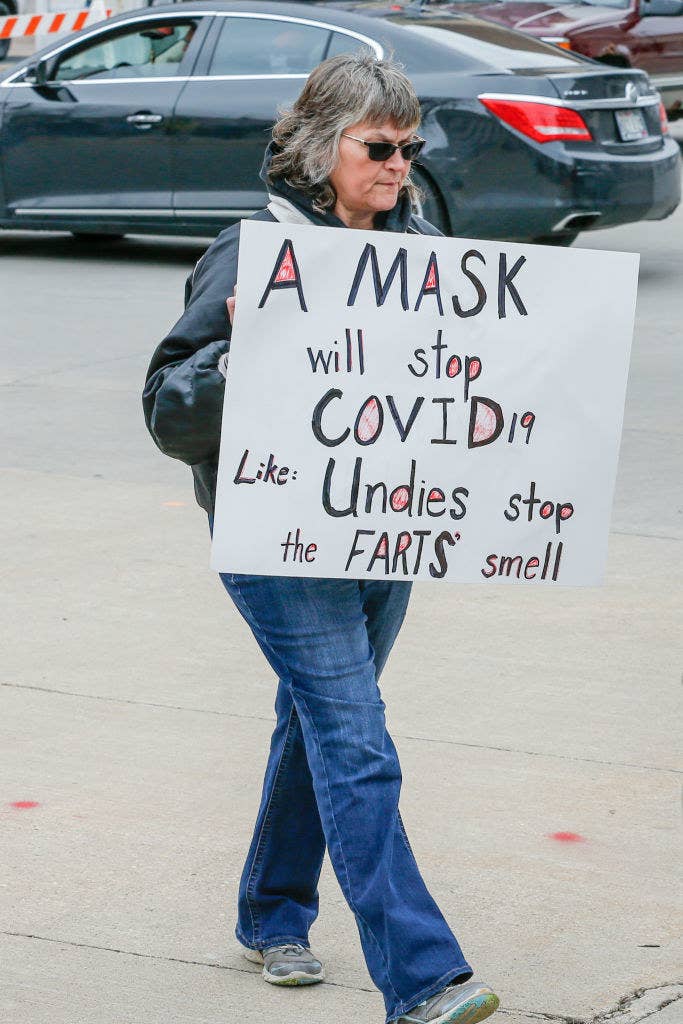 A MASK
will stop
COVID19
Like: Undies stop
the FARTS' smell